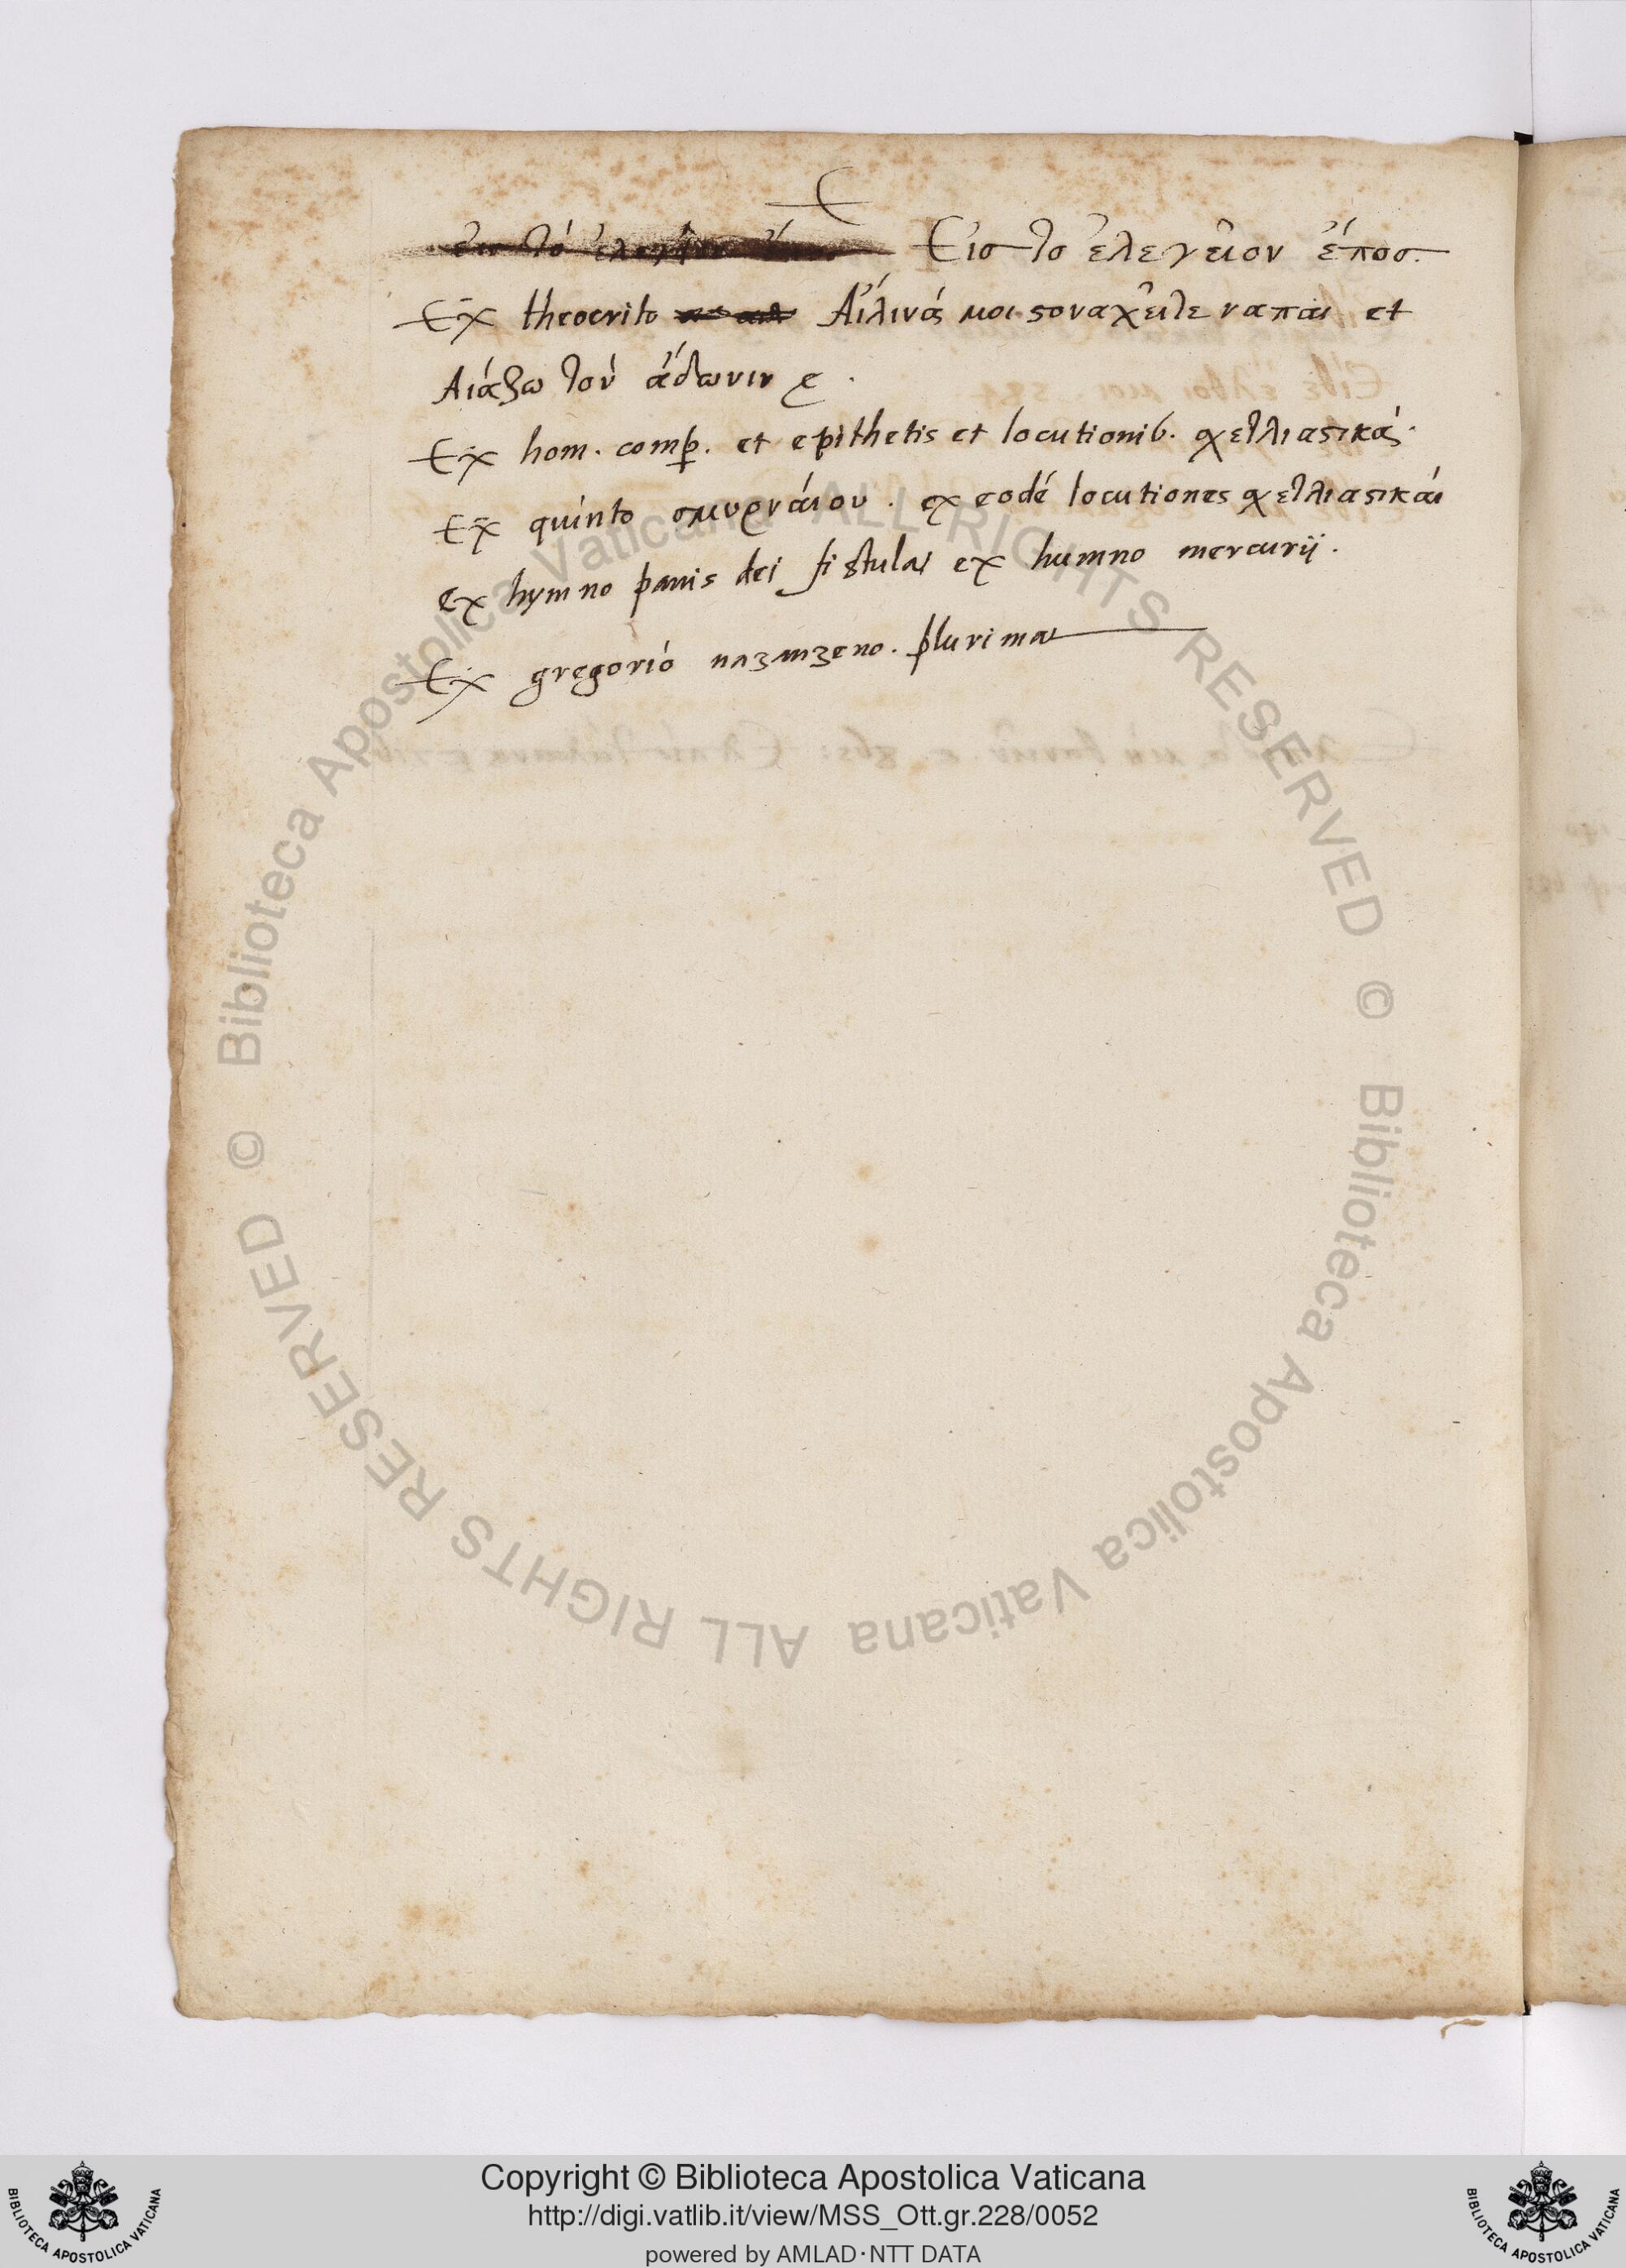 Ε
Εισ το ἐλεγεῖον ἔπος.
Ex theocrito Αἴλινά μοι στοναχεῖτε ναπαι et
Αιάζω τὸν ἄδωνιν
Ex hom. comp. et epithetis et locutionib. σχετλιαστικά.
Ex quinto σμυρνάιου. ex eodé locutiones σχετλιαστικάι
ex hymno panis dei fistula ex humno mercurij.
Ex gregorio nazanzeno. plurima
Biblioteca Apostolica Vaticana ALL RIGHTS RESERVED ©
Biblioteca Apostolica Vaticana ALL RIGHTS RESERVED ©
Copyright © Biblioteca Apostolica Vaticana
http://digi.vatlib.it/view/MSS_Ott.gr.228/0052
powered by AMLAD·NTT DATA
BIBLIOTECA APOSTOLICA VATICANA
BIBLIOTECA APOSTOLICA VATICANA